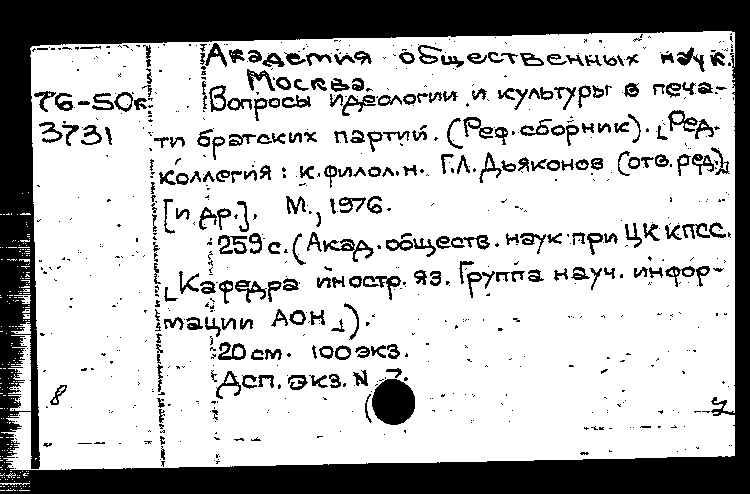 Академия общественных наук.
Москва.
76-50к
3731
Вопросы идеологии и культуры в печа-
ти братских партий. (Реф. сборник). [Ред.
коллегия: к.филол.н. Г.Л. Дьяконов (отв. ред.)
[и др.]. М., 1976.
259 с. (Акад. обществ. наук при ЦК КПСС.
[Кафедра иностр. яз. Группа науч. инфор-
мации АОН]).
20 см. 100 экз.
Дсп. экз. N 7.
8